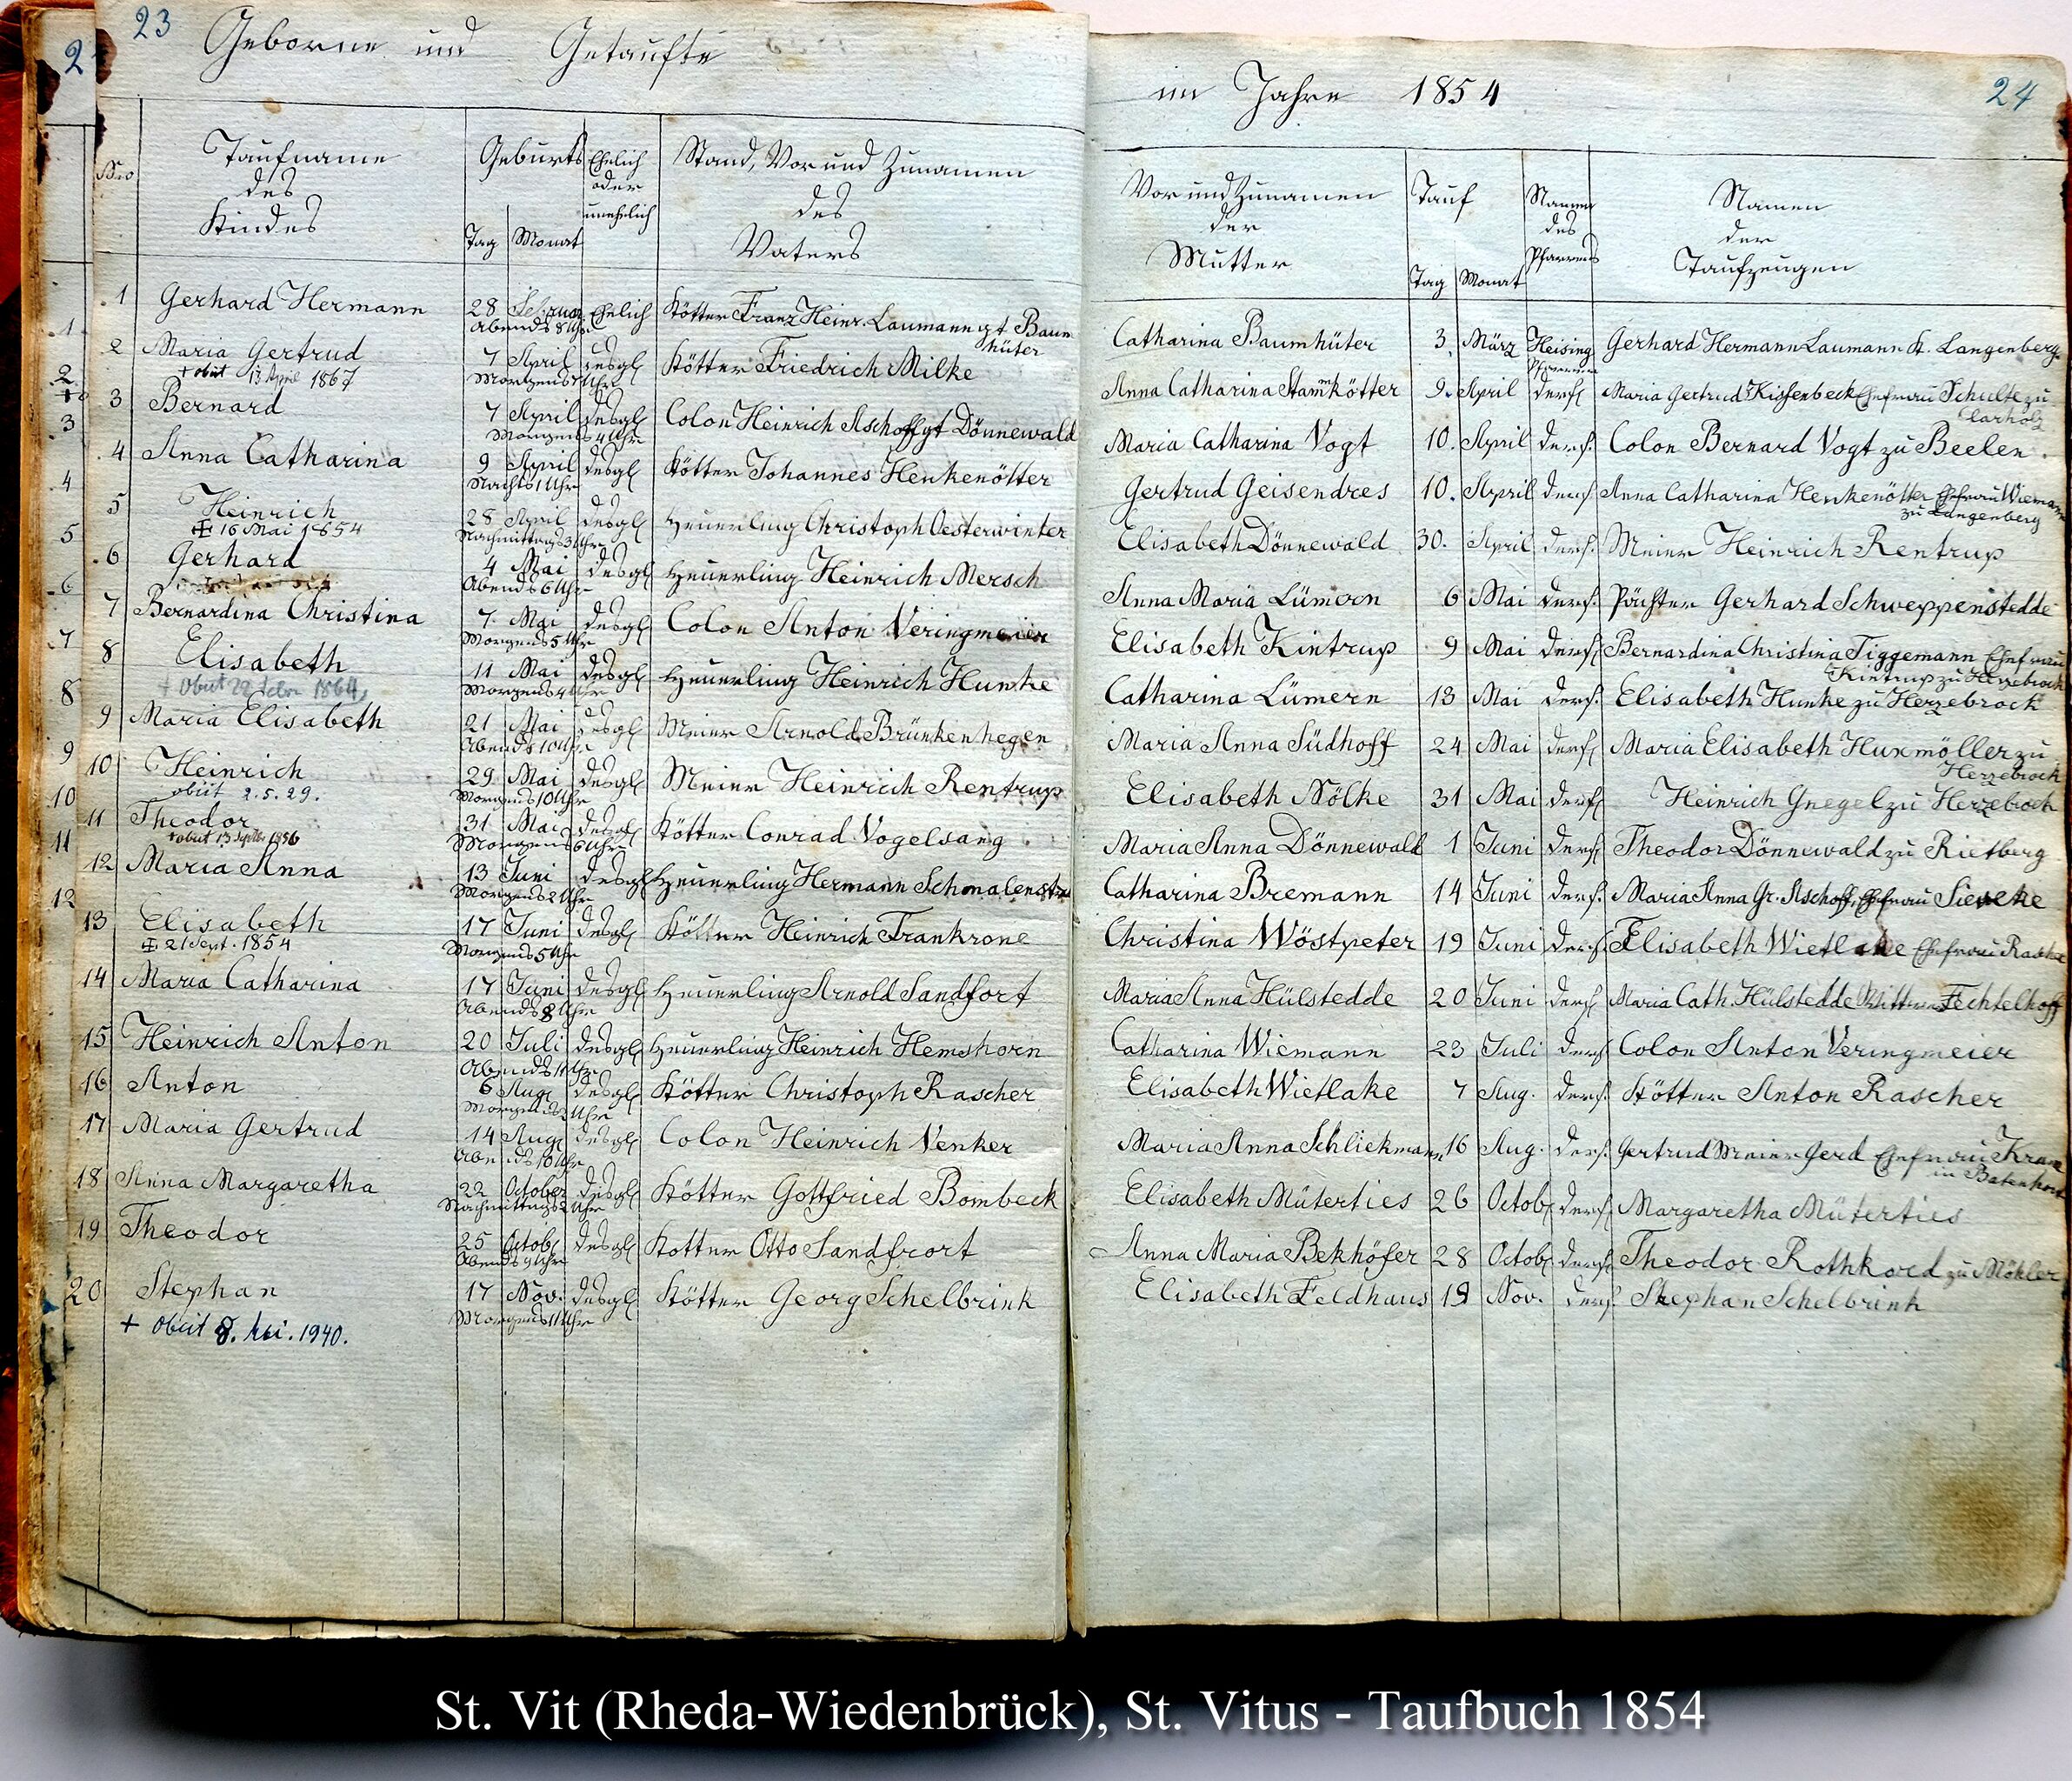 23
Geborne und Getaufte
Nro
Taufname
des
Kindes
Geburts
Tag Monat
Ehelich
oder
unehelich
Stand, Vor und Zunamen
des
Vaters
1 Gerhard Hermann 28 Februar Ehelich Kötter Franz Heinr. Laumann gt Baum
Abends 8 Uhr hüter
2 Maria Gertrud 7 April desgl Kötter Friedrich Milke
+ obiit 13 April 1867 Morgens Uhr
3 Bernard 7 April desgl Colon Heinrich Aschoff gt Dönnewald
Morgens 4 Uhr
4 Anna Catharina 9 April desgl Kötter Johannes Henkenötter
Nachts 1 Uhr
5 Heinrich 28 April desgl Heuerling Christoph Oesterwinter
16 Mai 1854 Nachmittags 3 Uhr
6 Gerhard 4 Mai desgl Heuerling Heinrich Mersch
Abends 6 Uhr
7 Bernardina Christina 7. Mai desgl Colon Anton Veringmeier
Morgens 5 Uhr
8 Elisabeth 11 Mai desgl Heuerling Heinrich Hunke
+ Obiit 22 Febr 1864 Morgens Uhr
9 Maria Elisabeth 21 Mai desgl Meier Arnold Brünkenhegen
Abends 10 Uhr
10 Heinrich 29 Mai desgl Meier Heinrich Rentrup
obiit 2.5.29. Morgens 10 Uhr
11 Theodor 31 Mai desgl Kötter Conrad Vogelsang
+ obiit 13 Septbr 1856 Morgens 6 Uhr
12 Maria Anna 13 Juni desgl Heuerling Hermann Schmalenstr
Morgens 2 Uhr
13 Elisabeth 17 Juni desgl Kötter Heinrich Frankrone
21 Sept. 1854 Morgens 5 Uhr
14 Maria Catharina 17 Juni desgl Heuerling Arnold Sandfort
Abends 8 Uhr
15 Heinrich Anton 20 Juli desgl Heuerling Heinrich Hemshorn
Abends 11 Uhr
16 Anton 6 Aug desgl Kötter Christoph Rascher
Morgens 2 Uhr
17 Maria Gertrud 14 Aug desgl Colon Heinrich Venker
Abends 10 Uhr
18 Anna Margaretha 22 October desgl Kötter Gottfried Bombeck
Nachmittags 2 Uhr
19 Theodor 25 Octob desgl Kotter Otto Sandfrort
Abends 9 Uhr
20 Stephan 17 Nov. desgl Kötter Georg Schelbrink
+ obiit 8. Mai. 1940. Morgens 11 Uhr
2
1
2
3
4
5
6
7
8
9
10
11
12
im Jahre 1854
24
Vor und Zunamen
der
Mutter
Tauf
Tag Monat
Namen
des
Pfarrers
Namen
der
Taufzeugen
Catharina Baumhüter 3. März Heising Gerhard Hermann Laumann K. Langenberg
Pfarrer
Anna Catharina Stammkötter 9. April ders Maria Gertrud Kissenbeck Ehefrau Schulte zu
Clarholz
Maria Catharina Vogt 10. April ders. Colon Bernard Vogt zu Beelen.
Gertrud Geisendres 10. April ders. Anna Catharina Henkenötter Ehefrau Wiemann
zu Langenberg
Elisabeth Dönnewald 30. April ders. Meier Heinrich Rentrup
Anna Maria Lümern 6 Mai ders. Pächter Gerhard Schweppenstedde
Elisabeth Kintrup 9 Mai ders Bernardina Christina Tiggemann Ehefrau
Kintrup zu Herzebrock
Catharina Lümern 13 Mai ders. Elisabeth Hunke zu Herzebrock
Maria Anna Südhoff 24 Mai ders Maria Elisabeth Huxmöller zu
Herzebrock
Elisabeth Nölke 31 Mai ders Heinrich Gnegel zu Herzebrock
Maria Anna Dönnewald 1 Juni ders Theodor Dönnewald zu Rietberg
Catharina Bremann 14 Juni ders. Maria Anna Gr. Aschoff, Ehefrau Sieveke
Christina Wöstpeter 19 Juni ders. Elisabeth Wietlake Ehefrau Rascher
Maria Anna Hülstedde 20 Juni ders Maria Cath. Hülstedde Wittwe Fechtelhoff
Catharina Wiemann 23 Juli ders Colon Anton Veringmeier
Elisabeth Wietlake 7 Aug. ders. Kötter Anton Rascher
Maria Anna Schliekmann 16 Aug. ders. Gertrud Meier Gerd Ehefrau Kran
in Batenhorst
Elisabeth Müterties 26 Octob ders Margaretha Müterties
Anna Maria Bekhöfer 28 Octob ders Theodor Rothkord zu Mökler
Elisabeth Feldhaus 19 Nov. ders. Stephan Schelbrink
St. Vit (Rheda-Wiedenbrück), St. Vitus - Taufbuch 1854